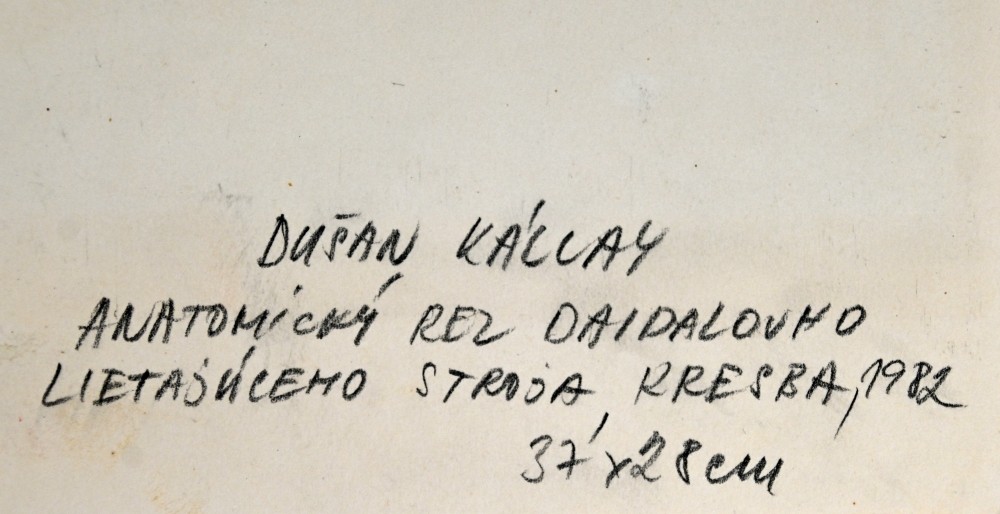 DUŠAN KÁLLAY
ANATOMICKÝ REZ DAIDALOVHO
LIETAJÚCEHO STROJA, KRESBA, 1982
37 x 28 cm